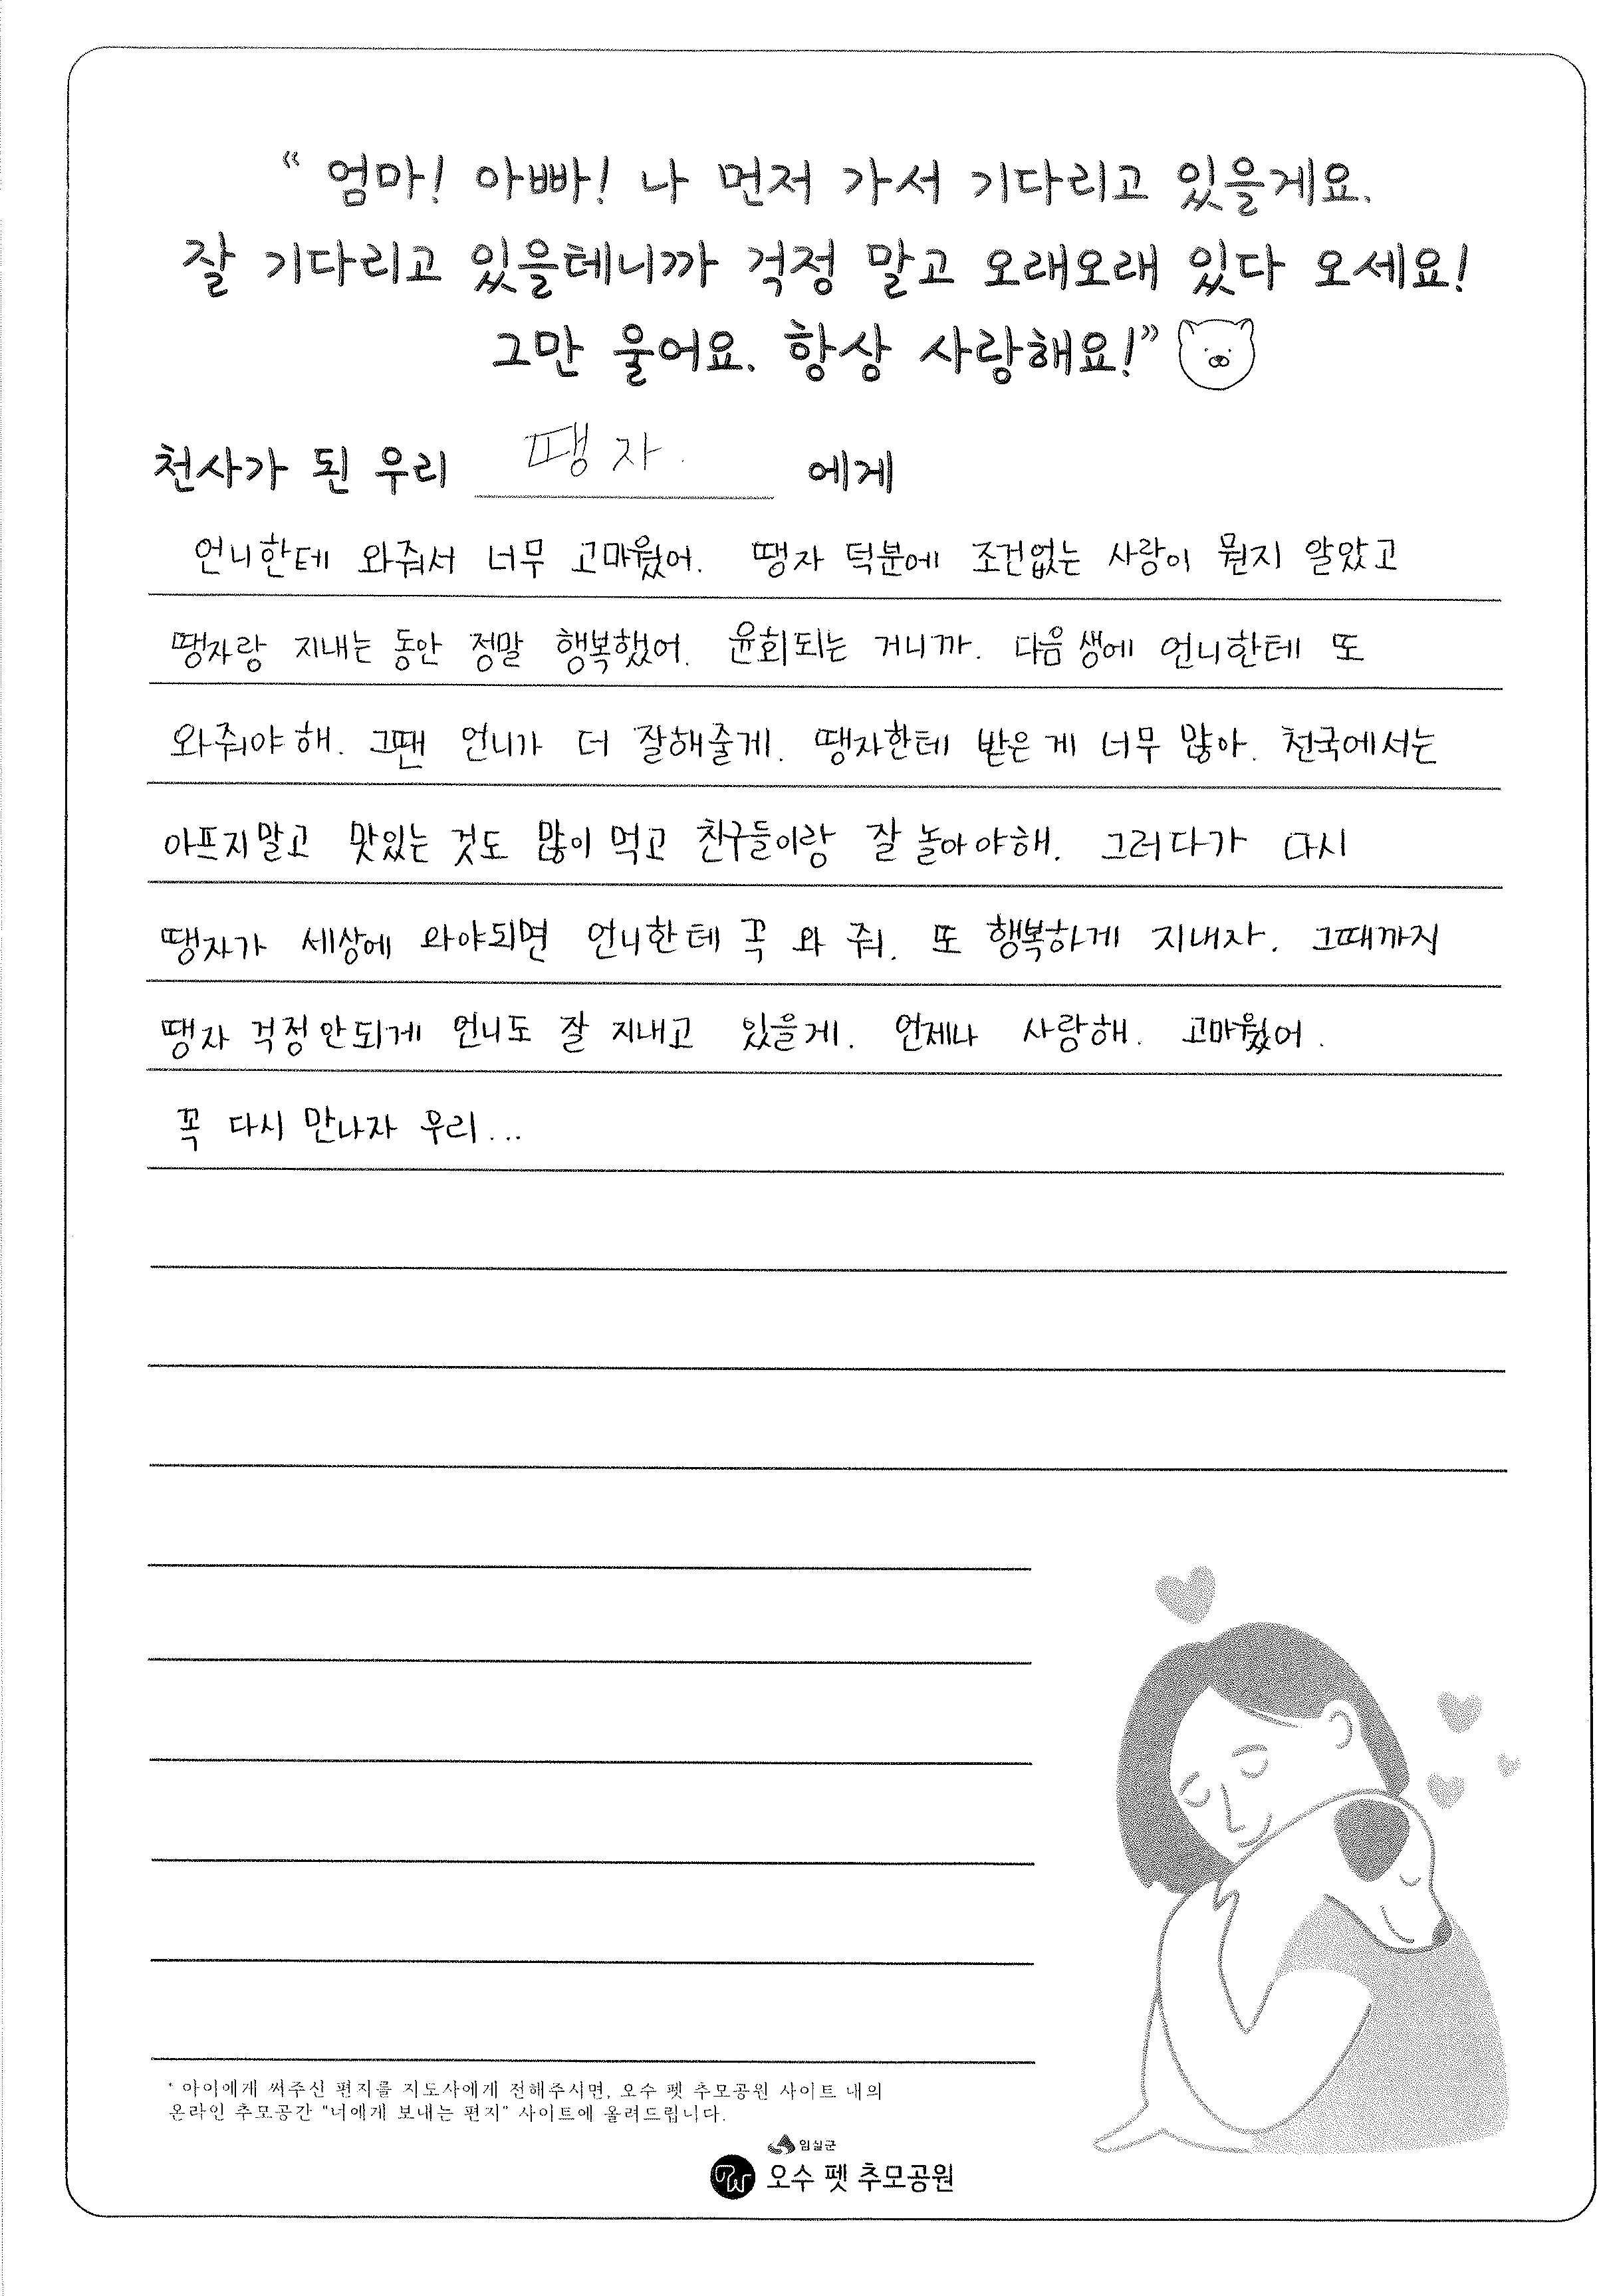 “ 엄마! 아빠! 나 먼저 가서 기다리고 있을게요.
잘 기다리고 있을테니까 걱정 말고 오래오래 있다 오세요!
그만 울어요. 항상 사랑해요!”
천사가 된 우리 땡자. 에게
언니한테 와줘서 너무 고마웠어. 땡자 덕분에 조건없는 사랑이 뭔지 알았고
땡자랑 지내는 동안 정말 행복했어. 윤회되는 거니까. 다음 생에 언니한테 또
와줘야 해. 그땐 언니가 더 잘해줄게. 땡자한테 받은 게 너무 많아. 천국에서는
아프지말고 맛있는 것도 많이 먹고 친구들이랑 잘 놀아야해. 그러다가 다시
땡자가 세상에 와야되면 언니한테 꼭 와 줘. 또 행복하게 지내자. 그때까지
땡자 걱정안되게 언니도 잘 지내고 있을게. 언제나 사랑해. 고마웠어.
꼭 다시 만나자 우리...
* 아이에게 써주신 편지를 지도사에게 전해주시면, 오수 펫 추모공원 사이트 내의
온라인 추모공간 "너에게 보내는 편지" 사이트에 올려드립니다.
임실군
오수 펫 추모공원